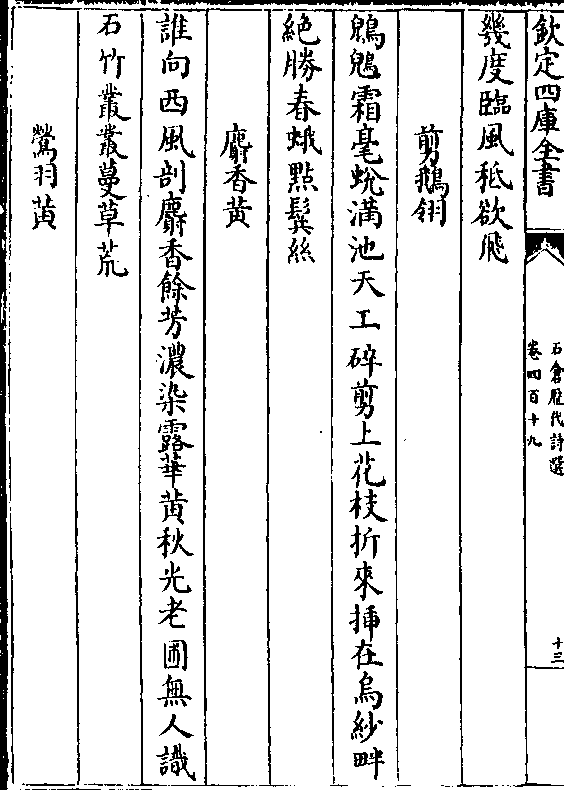 欽定四庫全書
石倉歷代詩選
卷四百十九
十三
幾度臨風秪欲飛
剪鵝翎
鵷鶵霜毫蛻滿池天工碎剪上花枝折來揷在烏紗畔
絶勝春蛾㸃鬂絲
麝香黄
誰向西風剖麝香餘芳濃染露華黄秋光老圃無人識
石竹叢叢蔓草荒
鶯羽黄